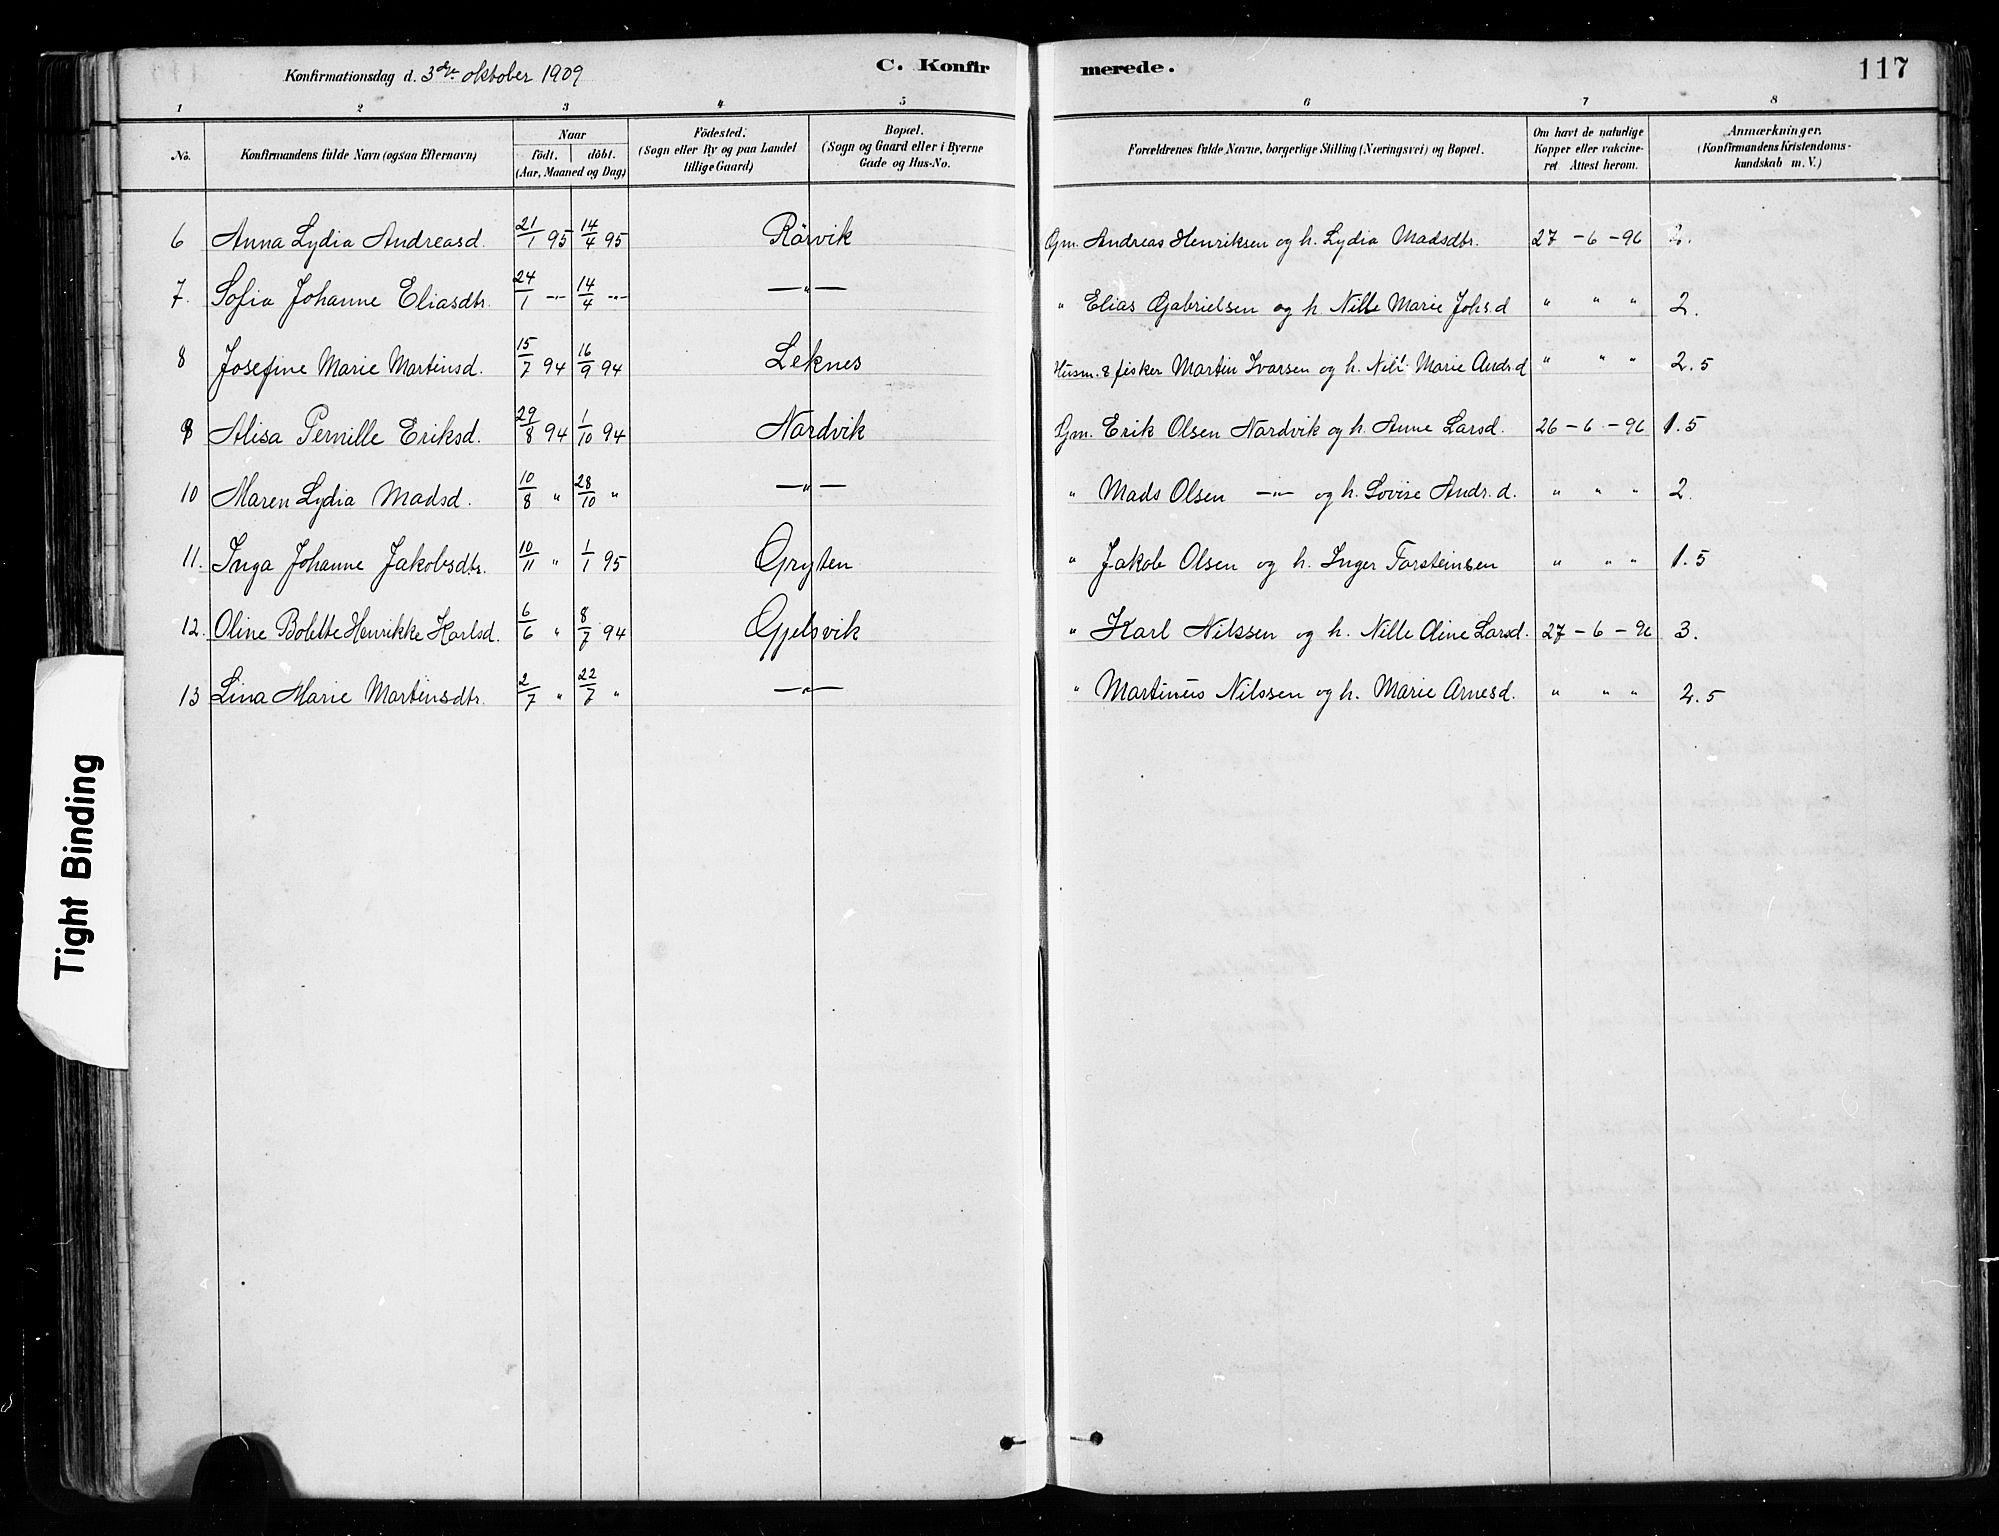 Konfirmationsdag d. 3die oktober 1909 C. Konfirmerede. 117
1 2 3 4 5 6 7 8
No. Konfirmandens fulde Navn (ogsaa Efternavn) Naar födt. döbt. (Aar, Maaned og Dag) Födested. (Sogn eller By og paa Landet tillige Gaard) Bopæl. (Sogn og Gaard eller i Byerne Gade og Hus-No. Forældrenes fulde Navne, borgerlige Stilling (Næringsvei) og Bopæl. Om havt de naturlige Kopper eller vakcineret Attest herom. Anmærkninger. (Konfirmandens Kristendomskundskab m. V.)
6 Anna Lydia Andreasd. 21/1 95 14/4 95 Rörvik Gm. Andreas Henriksen og h. Lydia Madsdtr. 27 - 6 - 96 2.
7. Sofia Johanne Eliasdtr. 24/1 -"- 14/4 -"- -"- " Elias Gabrielsen og h. Nille Marie Johs.d " " " 2.
8 Josefine Marie Martinsd. 15/7 94 16/9 94 Leknes Husm. & fisker Martin Ivarsen og h. Nill. Marie Andr.d " " " 2.5
9 Alisa Pernille Eriksd. 29/8 94 1/10 94 Nordvik Gm. Erik Olsen Nordvik og h. Anne Larsd. 26 - 6 - 96 1.5
10 Maren Lydia Madsd. 10/8 " 28/10 " -"- " Mads Olsen -"- og h. Lovise Andr.d. " " " 2.
11. Inga Johanne Jakobsdtr. 10/11 " 1/1 95 Gryten " Jakob Olsen og h. Inger Torsteinsen " " " 1.5
12. Oline Bolette Henrikke Karlsd. 6/6 " 8/7 94 Gjelsvik " Karl Nilssen og h. Nille Oline Larsd. 27 - 6 - 96 3.
13 Lina Marie Martinsdtr. 2/7 " 22/7 " -"- " Martinus Nilssen og h. Marie Arnesd. " " " 2.5
Tight Binding